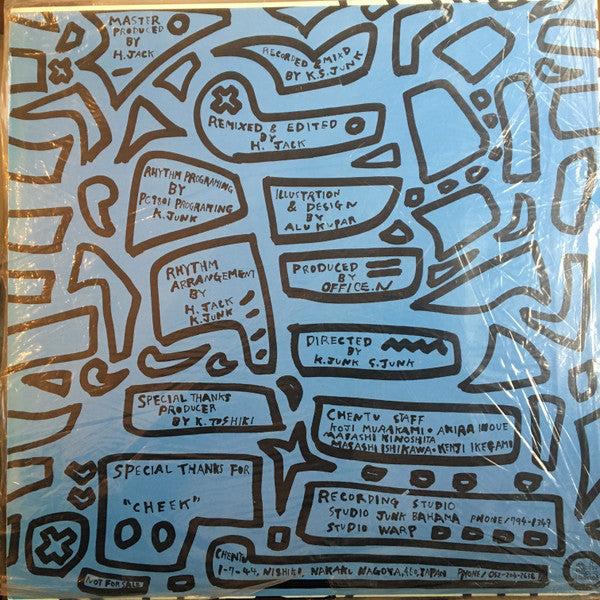 MASTER
PRODUCED
BY
H. JACK
RECORDED & MIXD
BY K.S. JUNK
REMIXED & EDITED
BY
H. JACK
RHYTHM PROGRAMING
BY
PC9801 PROGRAMING
K. JUNK
ILLUSTRATION
& DESIGN
BY
ALU KUPAR
RHYTHM
ARRANGEMENT
BY
H. JACK
K. JUNK
PRODUCED
BY
OFFICE.N
DIRECTED
BY
K. JUNK S. JUNK
SPECIAL THANKS
PRODUCER
BY K. TOSHIKI
CHENTU STAFF
KOJI MURAKAMI • AKIRA INOUE
MASASHI KINOSHITA
MASASHI ISHIKAWA • KENJI IKEGAMI
SPECIAL THANKS FOR
"CHEEK"
RECORDING STUDIO
STUDIO JUNK BAHAMA PHONE/794-1347
STUDIO WARP
CHENTU
1-7-44, NISHIKI, NAKAKU NAGOYA, JAPAN PHONE/052-204-
NOT FOR SALE